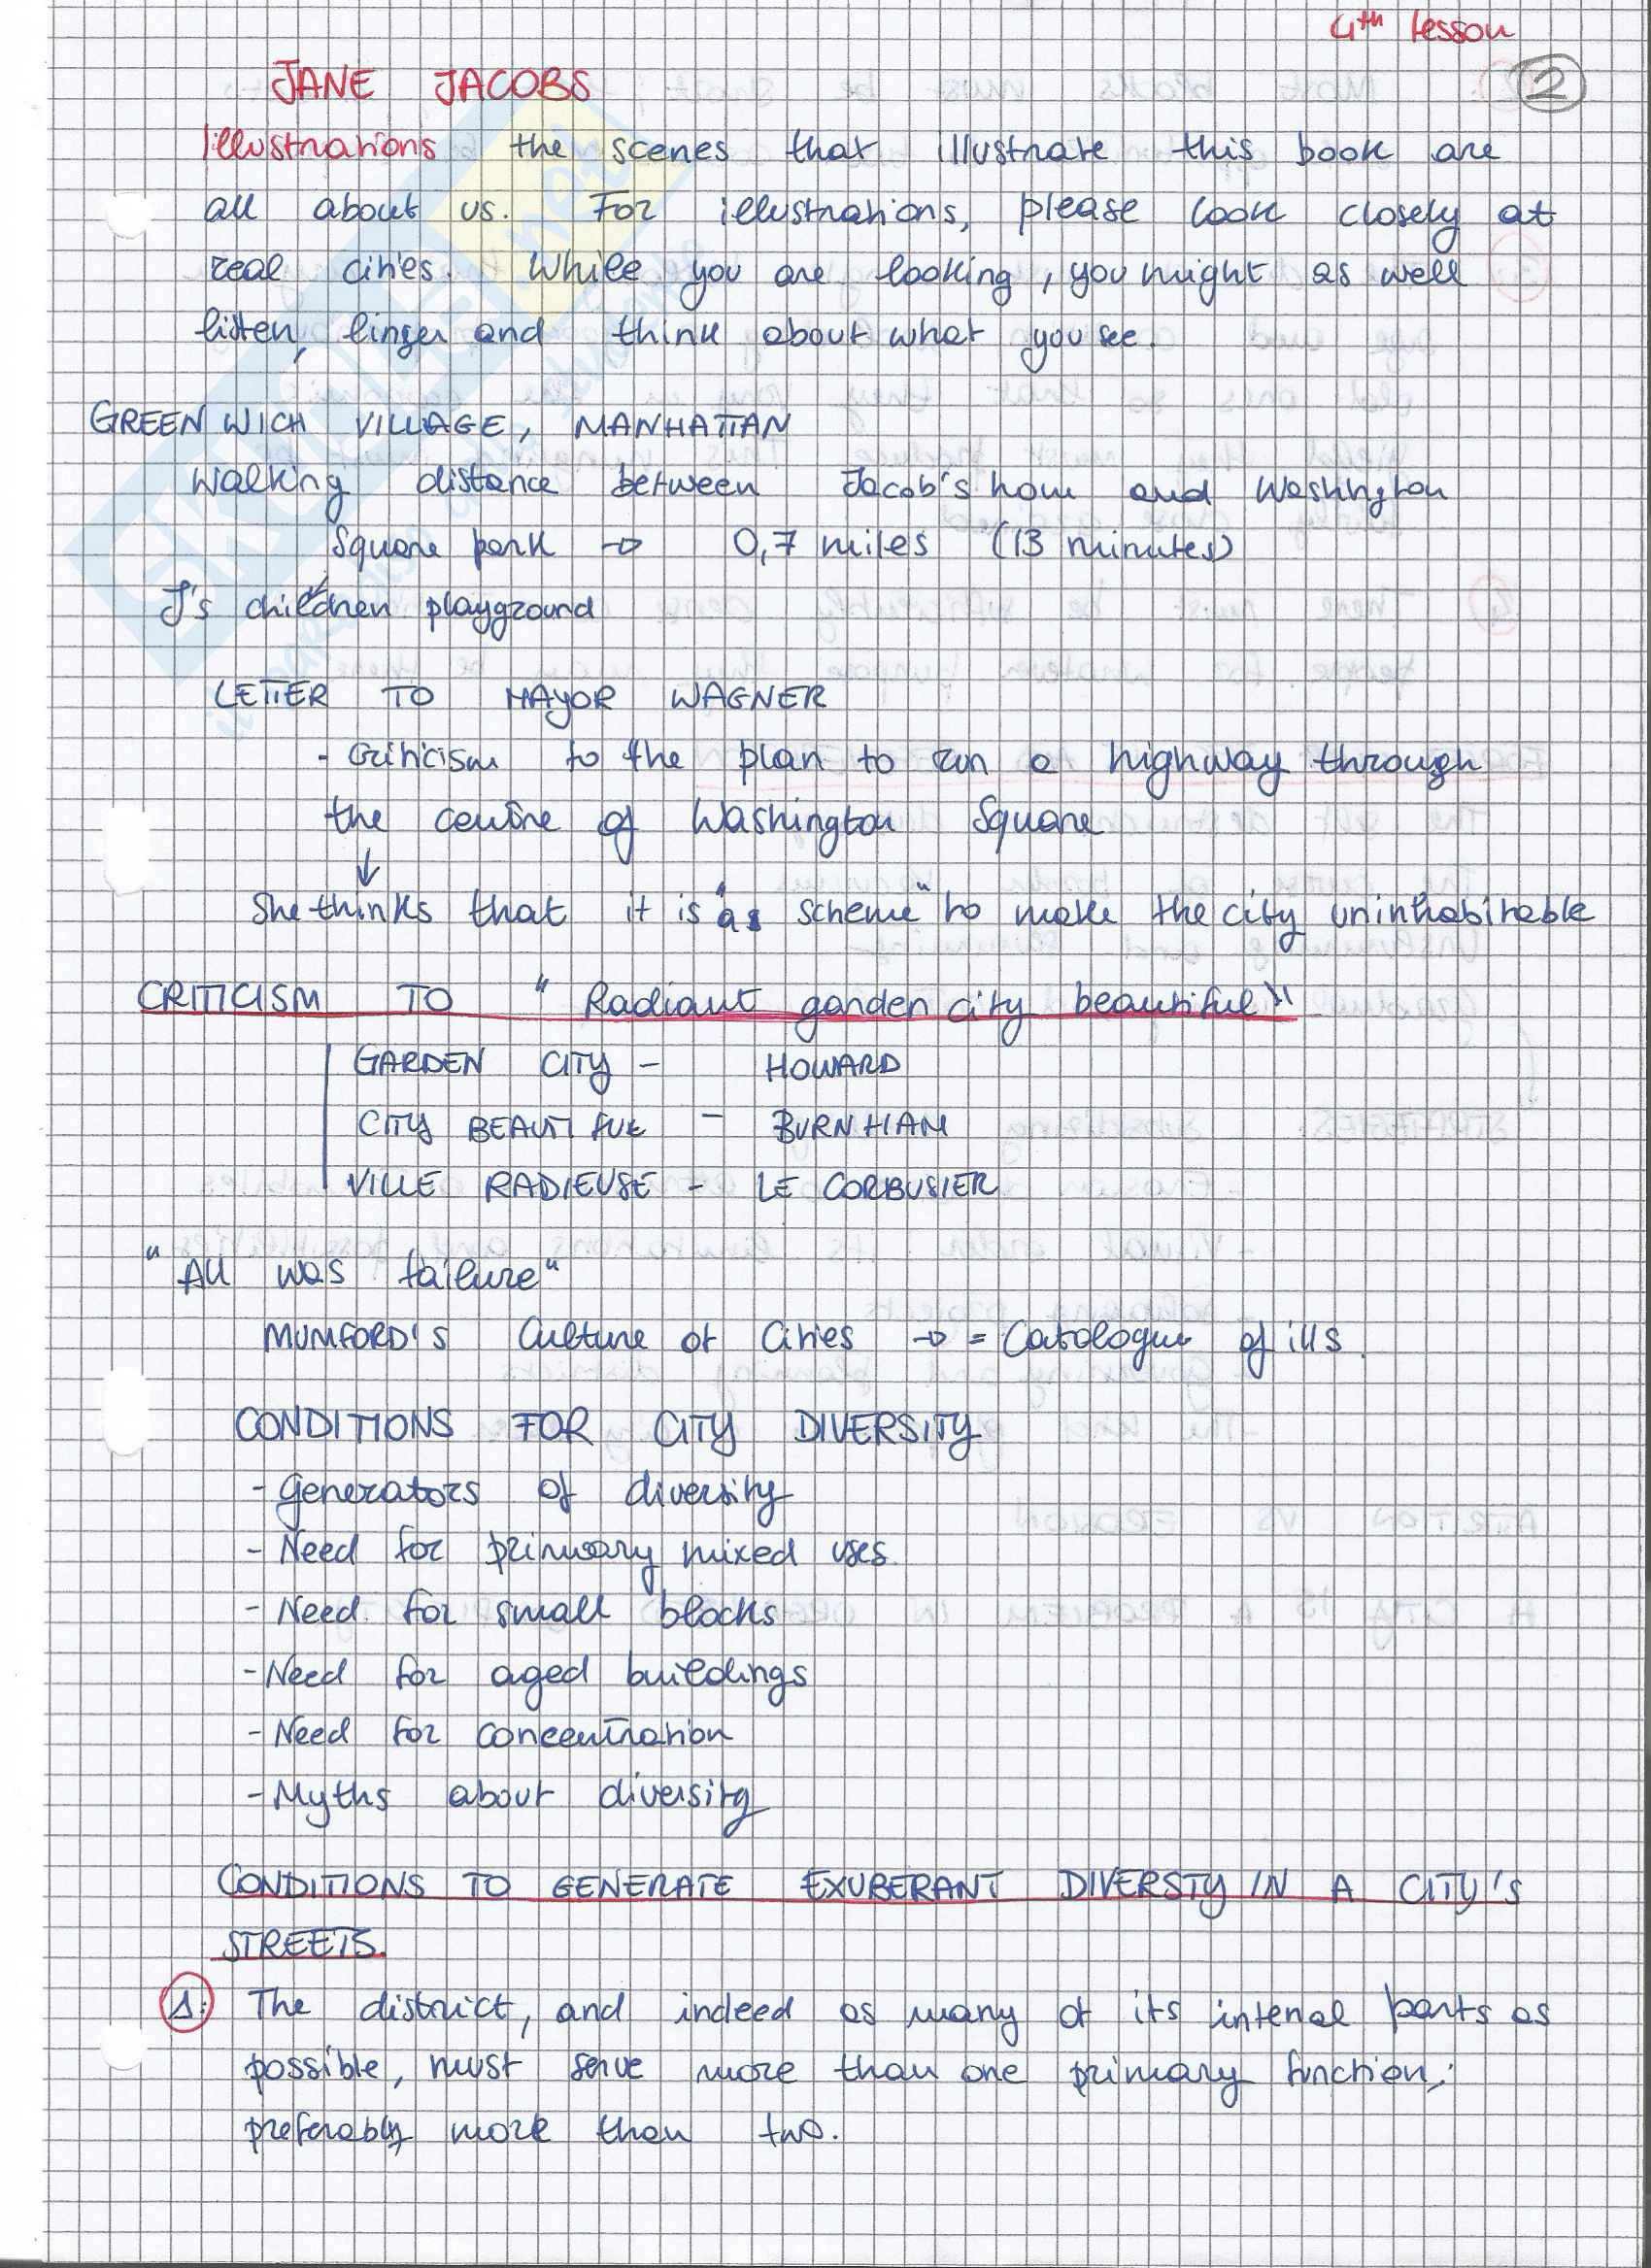 4th lesson
2
JANE JACOBS
Illustrations the scenes that illustrate this book are
all about us. For illustrations, please look closely at
real cities. While you are looking, you might as well
listen, linger and think about what you see.
GREENWICH VILLAGE, MANHATTAN
Walking distance between Jacob's home and Washington
Square park → 0,7 miles (13 minutes)
J's children playground
LETTER TO MAYOR WAGNER
- Criticism to the plan to run a highway through
the centre of Washington Square
↓
She thinks that it is "as scheme" to make the city uninhabitable
CRITICISM TO "Radiant garden city beautiful"
GARDEN CITY - HOWARD
CITY BEAUTIFUL - BURNHAM
VILLE RADIEUSE - LE CORBUSIER
"All was failure"
MUMFORD'S Culture of Cities → = Catologue of ills.
CONDITIONS FOR CITY DIVERSITY
- Generators of diversity
- Need for primary mixed uses.
- Need for small blocks
- Need for aged buildings
- Need for concentration
- Myths about diversity
CONDITIONS TO GENERATE EXUBERANT DIVERSTY IN A CITY'S
STREETS.
1. The district, and indeed as many of its internal parts as
possible, must serve more than one primary function;
preferably more than two.
SKUOLA.net